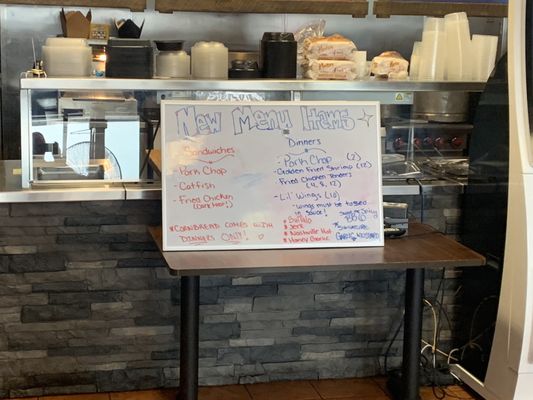 New Menu Items
Sandwiches
- Pork Chop
- Catfish
- Fried Chicken
(Dark Meat!)
* Cornbread comes with
Dinners ONLY!
Dinners
- Pork Chop (2)
- Golden Fried Shrimp (12)
- Fried Chicken Tenders
(4, 8, 12)
- Lil' Wings (10)
- wings must be tossed
in sauce!
* Buffalo
* Jerk
* Nashville Hot
* Honey Garlic